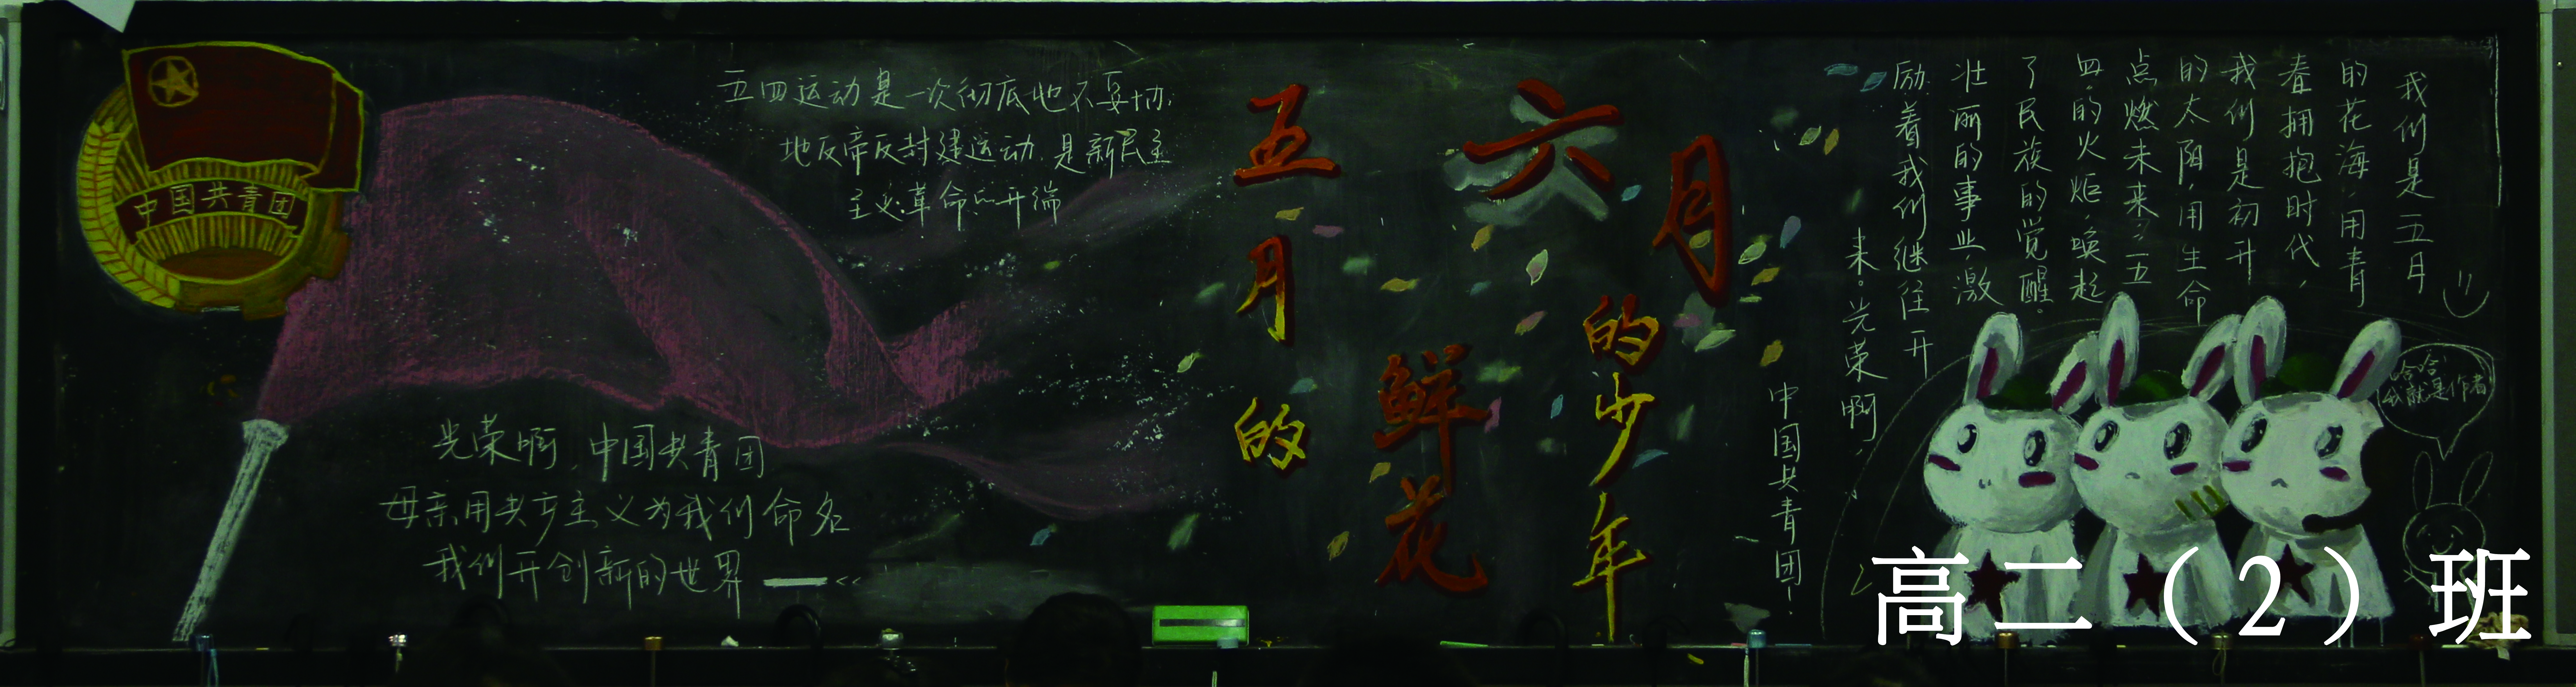 中国共青团
五四运动是一次彻底地不妥协
地反帝反封建运动，是新民主
主义革命的开端
光荣啊，中国共青团
母亲用共产主义为我们命名
我们开创新的世界
五月的
鲜花
六月
的少年
我们是五月
的花海，用青
春拥抱时代，
我们是初升
的太阳，用生命
点燃未来，五
四的火炬，唤起
了民族的觉醒。
壮丽的事业，激
励着我们继往开
来。光荣啊，
中国共青团！
哈哈
我就是作者
高二（2）班